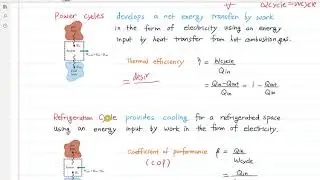 Wcycle = Wcycle
Power Cycles develops a net energy transfer by work
in the form of electricity using an energy
input by heat transfer from hot combustion gas.
Thermal efficiency η = Wcycle / Qin
= desir
= Qin - Qout / Qin = 1 - Qout / Qin
Refrigeration Cycle provides cooling for a refrigerated space
using an energy input by work in the form of electricity.
Coefficient of performance β = Qin / Wcycle
(COP)
= Qin